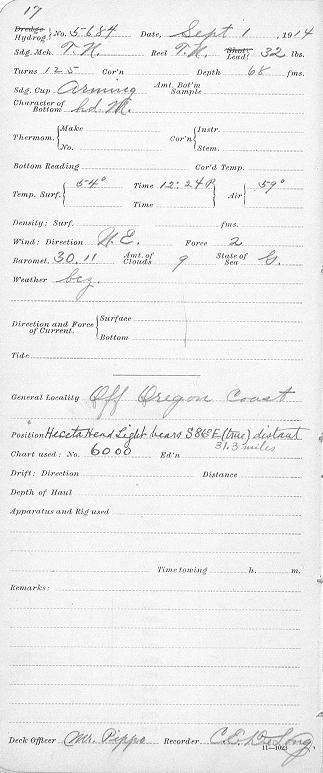 17
Dredge Hydrog. No. 5684 Date, Sept 1, 1914
Sdg. Mch. T.N. Reel T.N. Shot Lead 32 lbs.
Turns 125 Cor'n Depth 68 fms.
Sdg. Cup Arming Amt. Bot'm Sample
Character of Bottom hd. M.
Thermom. Make No. Cor'n Instr. Stem.
Bottom Reading Cor'd Temp.
Temp. Surf. 54° Time 12:24 P Air 59°
Time
Density: Surf. fms.
Wind: Direction N.E. Force 2
Baromet. 30.11 Amt. of Clouds 9 State of Sea G.
Weather bcz.
Direction and Force of Current. Surface
Bottom
Tide
General Locality Off Oregon Coast
Position Heceta Head Light bears S86°E (true) distant
31.3 miles
Chart used: No. 6000 Ed'n
Drift: Direction Distance
Depth of Haul
Apparatus and Rig used
Time towing h. m.
Remarks:
Deck Officer Mr. Pipps Recorder C.E. DeLong
11—1023